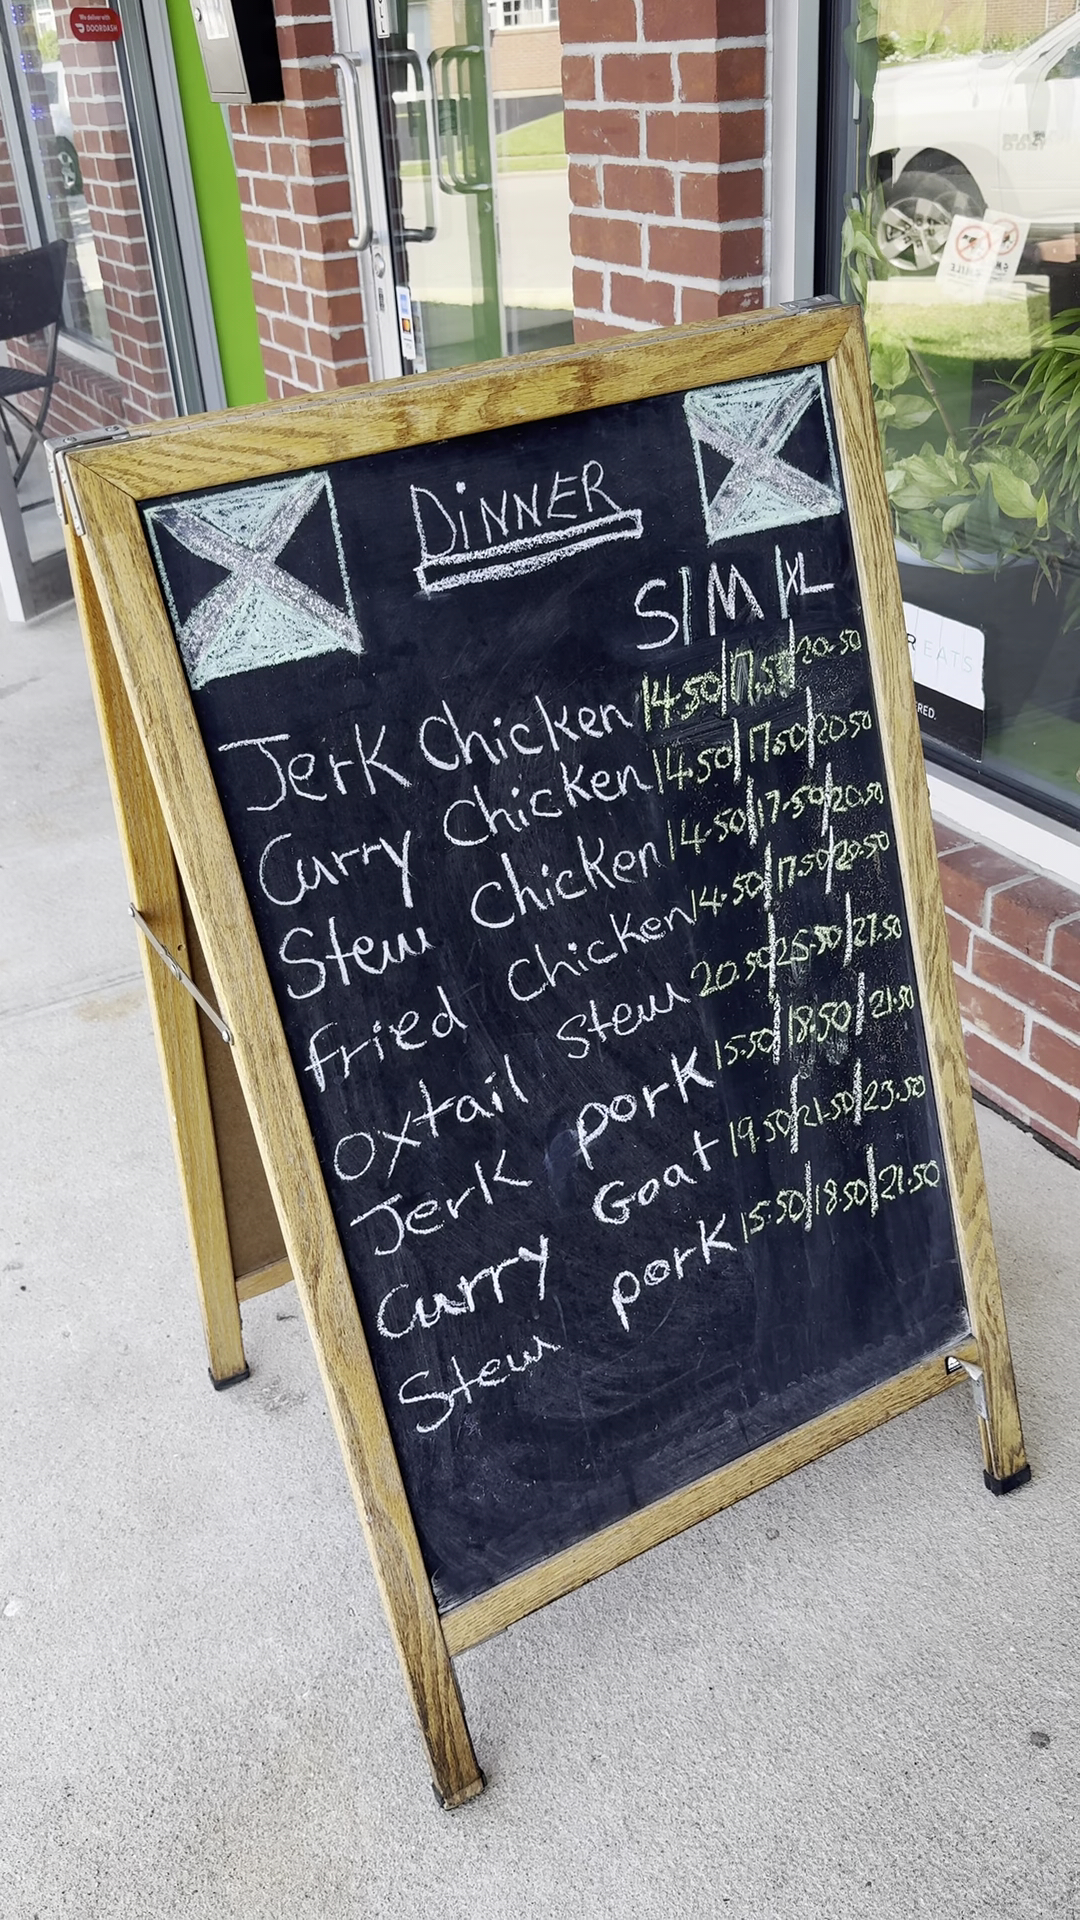 We deliver with
DOORDASH
DiNNER
S| M |XL
Jerk Chicken 14.50|17.50|20.50
Curry Chicken 14.50|17.50|20.50
Stew Chicken 14.50|17.50|20.50
fried Chicken 14.50|17.50|20.50
oxtail Stew 20.50|25.50|27.50
Jerk pork 15.50|18.50|21.50
Curry Goat 19.50|21.50|23.50
Stew pork 15.50|18.50|21.50
EATS